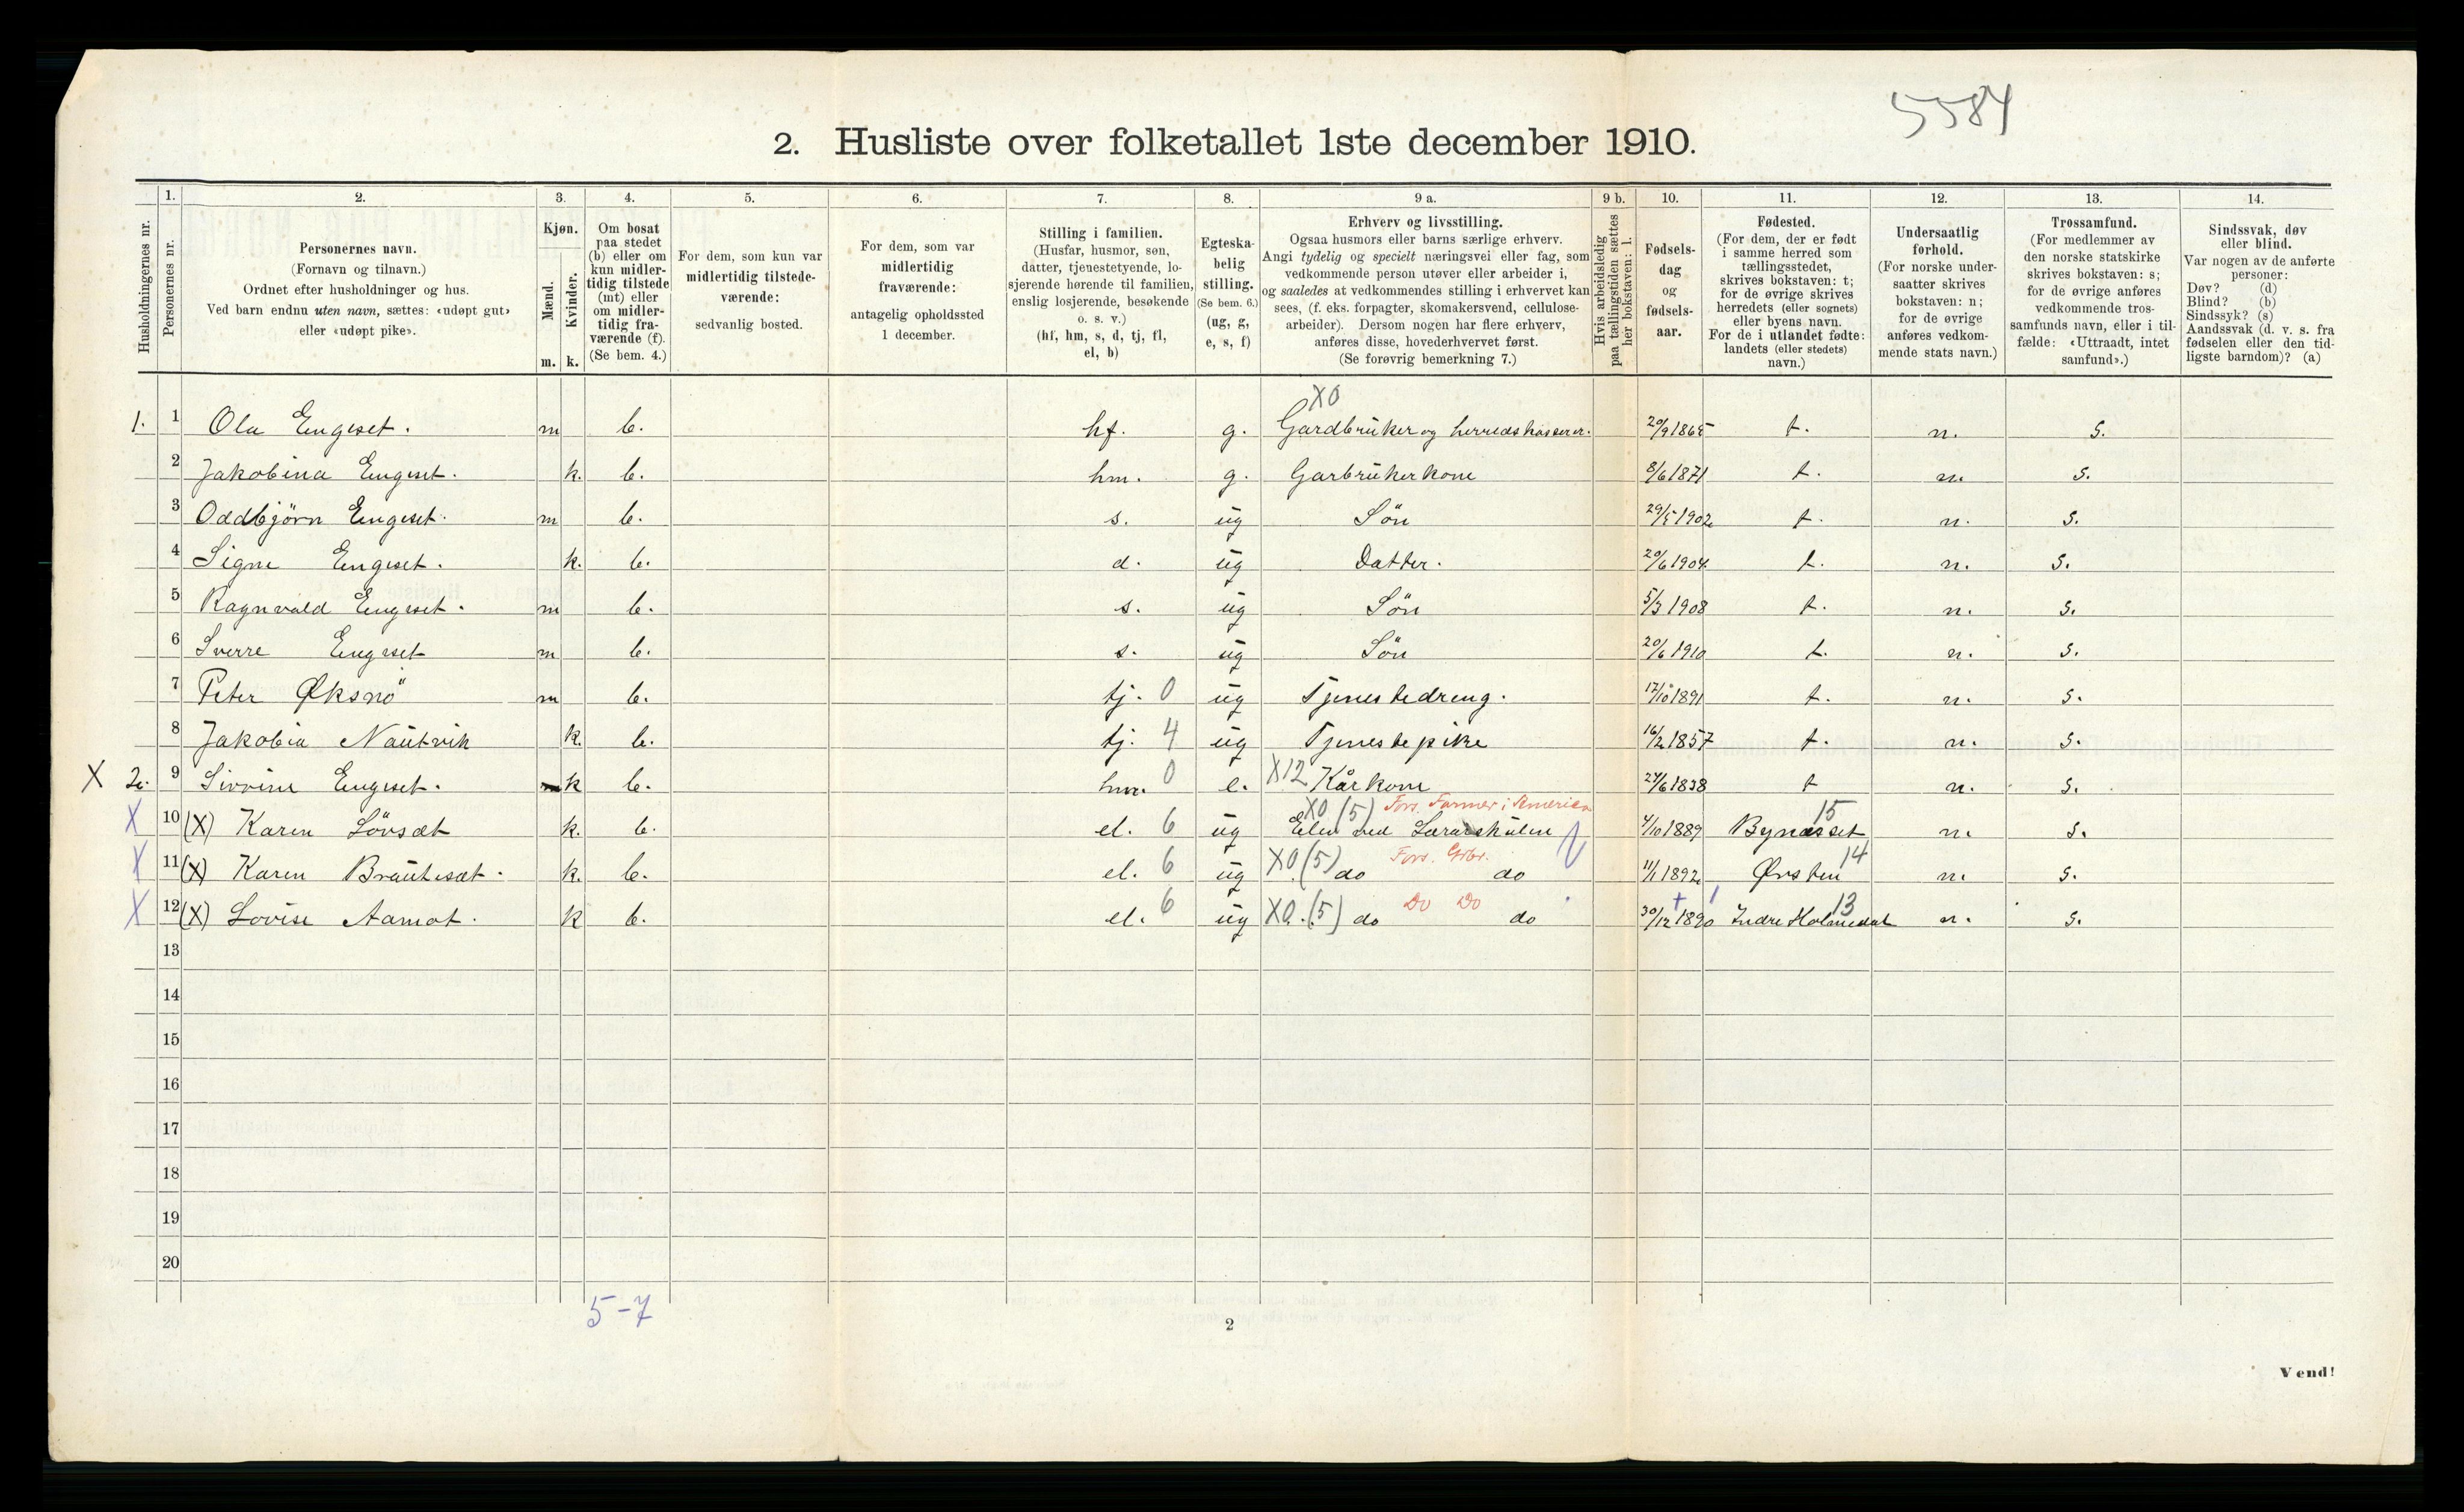 5584
2. Husliste over folketallet 1ste december 1910.
1. 2. 3. 4. 5. 6. 7. 8. 9 a. 9 b. 10. 11. 12. 13. 14.
Husholdningernes nr.
Personernes nr.
Personernes navn.
(Fornavn og tilnavn.)
Ordnet efter husholdninger og hus.
Ved barn endnu uten navn, sættes: «udøpt gut»
eller «udøpt pike».
Kjøn.
Mænd.
Kvinder.
m. k.
Om bosat
paa stedet
(b) eller om
kun midler-
tidig tilstede
(mt) eller
om midler-
tidig fra-
værende (f).
(Se bem. 4.)
For dem, som kun var
midlertidig tilstede-
værende:
sedvanlig bosted.
For dem, som var
midlertidig
fraværende:
antagelig opholdssted
1 december.
Stilling i familien.
(Husfar, husmor, søn,
datter, tjenestetyende, lo-
sjerende hørende til familien,
enslig losjerende, besøkende
o. s. v.)
(hf, hm, s, d, tj, fl,
el, b)
Egteska-
belig
stilling.
(Se bem. 6.)
(ug, g,
e, s, f)
Erhverv og livsstilling.
Ogsaa husmors eller barns særlige erhverv.
Angi tydelig og specielt næringsvei eller fag, som
vedkommende person utøver eller arbeider i,
og saaledes at vedkommendes stilling i erhvervet kan
sees, (f. eks. forpagter, skomakersvend, cellulose-
arbeider). Dersom nogen har flere erhverv,
anføres disse, hovederhvervet først.
(Se forøvrig bemerkning 7.)
Hvis arbeidsledig
paa tællingstiden sættes
her bokstaven: l.
Fødsels-
dag
og
fødsels-
aar.
Fødested.
(For dem, der er født
i samme herred som
tællingsstedet,
skrives bokstaven: t;
for de øvrige skrives
herredets (eller sognets)
eller byens navn.
For de i utlandet fødte:
landets (eller stedets)
navn.)
Undersaatlig
forhold.
(For norske under-
saatter skrives
bokstaven: n;
for de øvrige
anføres vedkom-
mende stats navn.)
Trossamfund.
(For medlemmer av
den norske statskirke
skrives bokstaven: s;
for de øvrige anføres
vedkommende tros-
samfunds navn, eller i til-
fælde: «Uttraadt, intet
samfund».)
Sindssvak, døv
eller blind.
Var nogen av de anførte
personer:
Døv? (d)
Blind? (b)
Sindssyk? (s)
Aandssvak (d. v. s. fra
fødselen eller den tid-
ligste barndom)? (a)
X0
1. 1 Ola Engeset. m b. hf. g. Gardbrüker og herredskasserer. 20/9 1865 t. n. s.
2 Jakobina Engeset. k. b. hm. g. Garbrükerkone 8/6 1871 t. n. s.
3 Oddbjörn Engeset. m b. s. üg Sön 29/5 1902 t. n. s.
4 Signe Engeset. k. b. d. üg Datter. 20/6 1904 t. n. s.
5 Ragnvald Engeset. m b. s. üg Sön 5/3 1908 t. n. s.
6 Sverre Engeset m b. s. üg Sön 20/6 1910 t. n. s.
7 Peter Øksnö m b. tj. 0 üg Tjenestedreng. 17/10 1891 t. n. s.
8 Jakobia Naütvik k. b. tj. 4 üg Tjenestepike 16/2 1857 t. n. s.
X 2. 9 Sivrine Engeset. k b. hm. 0 e. X12 Kårkone 24/6 1838 t n. s.
X0 (5) Fors. Farmer i Amerika
X 10 (X) Karen Lövset k. b. el. 6 üg Elev ved Lærarskülen 4/10 1889 Bynesset 15 n. s.
Fors. Gbr.
X 11 (X) Karen Braüteset. k. b. el. 6 üg X0 (5) do do 11/1 1892 Ørsten 14 n. s.
Do Do
X 12 (X) Lovise Aamot. k b. el. 6 üg X0. (5) do do 30/12 1890 Indre Holmedal 13 n. s.
13
14
15
16
17
18
19
20
5-7
2
Vend!